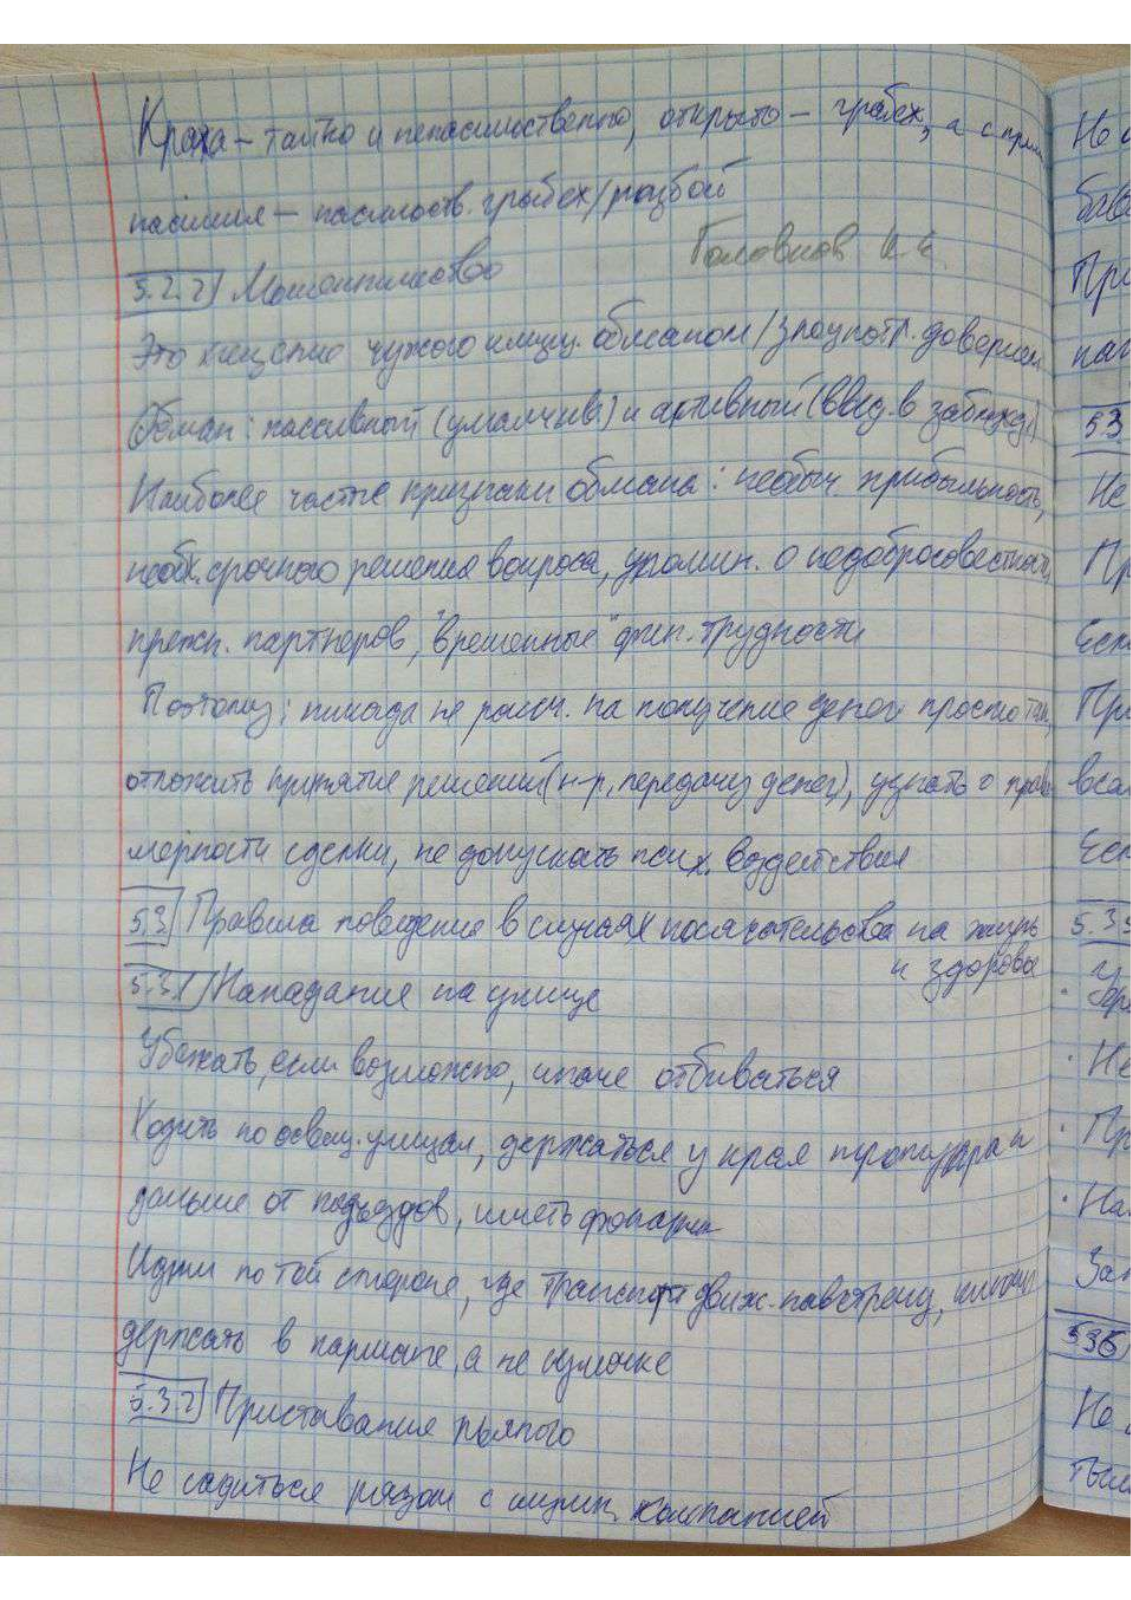 Кража – тайно и ненасильственно, открыто – грабёж, а с прим.
насилия – насильств. грабёж/разбой
Головков И.Е.
5.2.2 Мошенничество
Это хищение чужого имущ. обманом/злоупотр. доверием
Обман: пассивный (умалчив.) и активный (введ. в заблужд.)
Наиболее частые признаки обмана: необыч. прибыльность,
необх. срочного решения вопроса, упомин. о недобросовестности
прежн. партнёров, "временные" фин. трудности
Поэтому: никогда не рассч. на получение денег просто так,
отложить принятие решений (н-р, передачу денег), узнать о право
мерности сделки, не допускать псих. воздействия
5.3 Правила поведения в случаях посягательства на жизнь
и здоровье
5.3.1 Нападание на улице
Убежать, если возможно, иначе отбиваться
Ходить по освещ. улицам, держаться у края тротуара и
дальше от подъездов, иметь фонарик
Идти по той стороне, где транспорт движ. навстречу, ключи
держать в кармане, а не сумочке
5.3.2 Приставания пьяного
Не садиться рядом с шумн. компанией
Не
53
Не
Пр
Если
При
Если
5.3.3
Не
Пр
На
Зап
5.3.5
Не